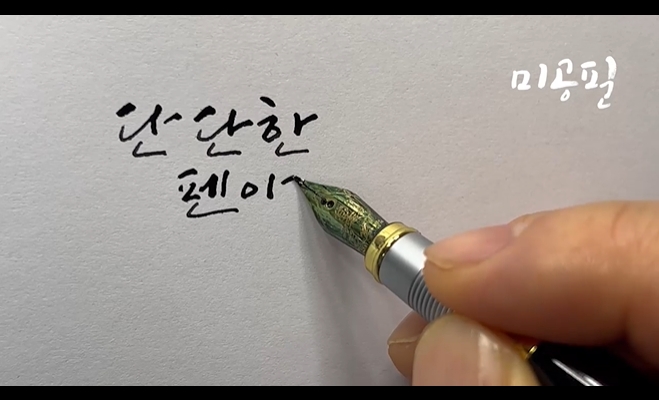 미공필
단단한
펜이